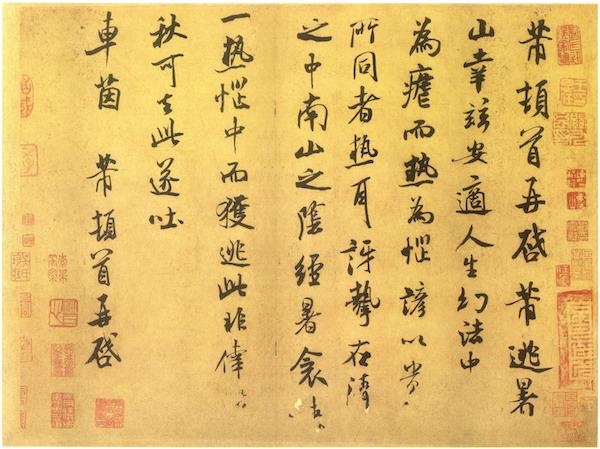 芾頓首再啓芾逃暑
山幸茲安適人生幻法中
為瘧而熱為惱諺以貴
所同者熱耳訝摯在清
之中南山之陰經暑衾
一熱惱中而獲逃此非倖
秋可去此遂吐
車茵 芾頓首再啓